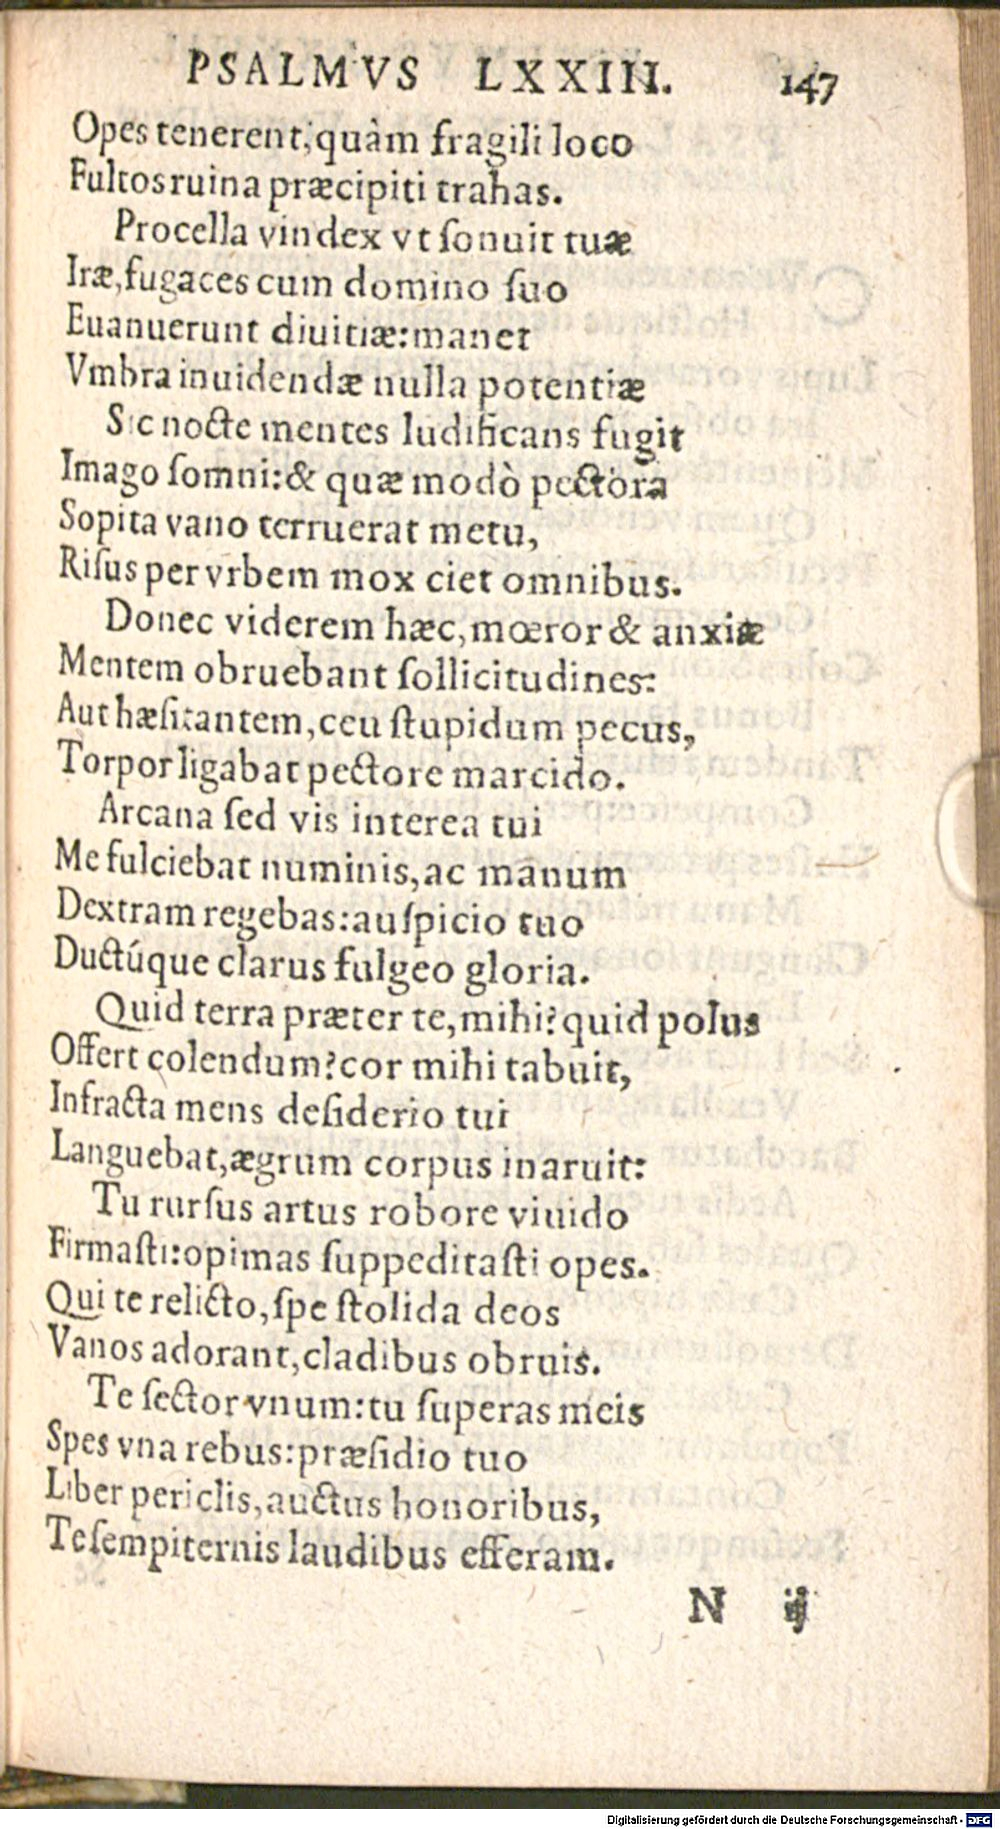 PSALMVS LXXIII. 147
Opes tenerent, quàm fragili loco
Fultos ruina præcipiti trahas.
Procella vindex vt ſonuit tuæ
Iræ, fugaces cum domino ſuo
Euanuerunt diuitiæ: manet
Vmbra inuidendæ nulla potentiæ
Sic nocte mentes ludificans fugit
Imago ſomni: & quæ modò pectora
Sopita vano terruerat metu,
Riſus per vrbem mox ciet omnibus.
Donec viderem hæc, mœror & anxiæ
Mentem obruebant ſollicitudines:
Aut hæſitantem, ceu ſtupidum pecus,
Torpor ligabat pectore marcido.
Arcana ſed vis interea tui
Me fulciebat numinis, ac manum
Dextram regebas: auſpicio tuo
Ductúque clarus fulgeo gloria.
Quid terra præter te, mihi? quid polus
Offert colendum? cor mihi tabuit,
Infracta mens deſiderio tui
Languebat, ægrum corpus inaruit:
Tu rurſus artus robore viuido
Firmaſti: opimas ſuppeditaſti opes.
Qui te relicto, ſpe ſtolida deos
Vanos adorant, cladibus obruis.
Te ſector vnum: tu ſuperas meis
Spes vna rebus: præſidio tuo
Liber periclis, auctus honoribus,
Te ſempiternis laudibus efferam.
N ij
Digitalisierung gefördert durch die Deutsche Forschungsgemeinschaft - DFG